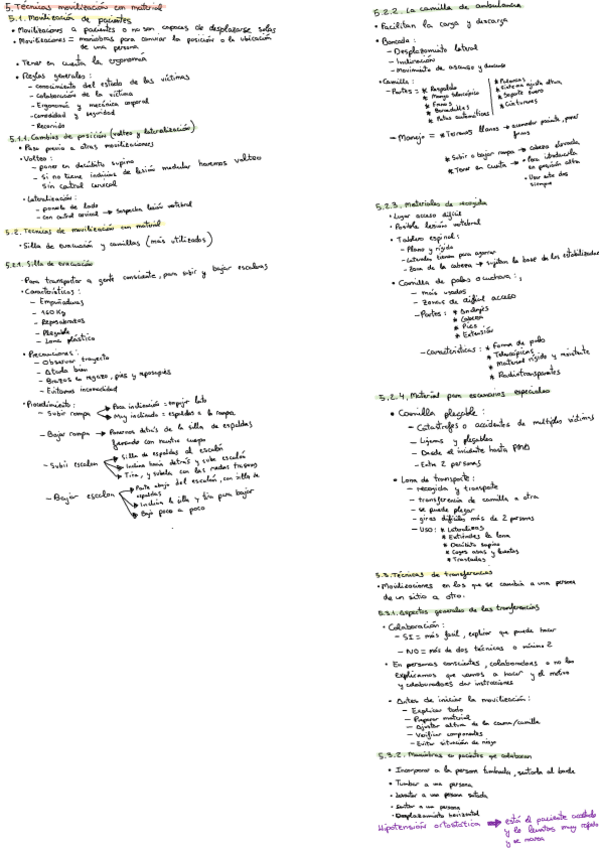 5. Técnicas movilización con material
5.1. Movilización de pacientes
• Movilizaciones a pacientes o no son capaces de desplazarse solas
• Movilizaciones = maniobras para cambiar la posición o la ubicación
de una persona
• Tener en cuenta la ergonomía
• Reglas generales:
- conocimiento del estado de las víctimas
- colaboración de la víctima
- Ergonomía y mecánica corporal
- comodidad y seguridad
- Recorrido
5.1.1. Cambios de posición (volteo y lateralización)
• Paso previo a otras movilizaciones
• Volteo:
- poner en decúbito supino
- si no tiene indicios de lesión medular haremos volteo
sin control cervical
• Lateralización:
- ponerla de lado
- con control cervical → sospecha lesión vertebral
5.2. Técnicas de movilización con material
• Silla de evacuación y camillas (más utilizados)
5.2.1. Silla de evacuación
• Para transportar a gente consciente, para subir y bajar escaleras
• Características:
- Empuñaduras
- 160 Kg
- Reposabrazos
- Plegable
- Lona plástico
• Precauciones:
- Observar trayecto
- Atarla bien
- Brazos en regazo, pies y reposapiés
- Evitamos incomodidad
• Procedimiento:
- Subir rampa → Poca inclinación = empujar
→ Muy inclinada = espaldas a la rampa
- Bajar rampa → Ponernos detrás de la silla de espaldas
frenando con nuestro cuerpo
- Subir escalon → Silla de espaldas al escalón
→ Inclina hacia detrás y sube escalón
→ Tira, y súbela con las ruedas traseras
- Bajar escalon → Parte abajo del escalón, con silla de
espaldas
→ Inclina la silla y tira para bajar
→ Baja poco a poco
5.2.2. La camilla de ambulancia
• Facilitan la carga y descarga
• Bancada:
- Desplazamiento lateral
- Inclinación
- Movimiento de ascenso y descenso
• Camilla:
- Partes = * Respaldo
* Mango telescópico
* Frenos
* Barandillas
* Patas automáticas
* Palancas
* Sistema ajuste altura
* Soporte suero
* Cinturones
- Manejo = * Terrenos llanos → paciente, poner
frenos
* Subir o bajar rampa → cabeza elevada
* Tener en cuenta → • Para introducirla
en posición alta
• Usar entre dos
siempre
5.2.3. Materiales de recogida
• Lugar acceso difícil
• Posible lesión vertebral
• Tablero espinal:
- Plano y rígido
- Laterales tienen para agarrar
- Zona de la cabeza → sujetan la base de los estabilizadores
• Camilla de palas o cuchara:
- más usadas
- Zonas de difícil acceso
- Partes: * Anclajes
* Cabeza
* Pies
* Extensión
- características: * Forma de pala
* Telescópicas
* Material rígido y resistente
* Radiotransparentes
5.2.4. Material para escenarios especiales
• Camilla plegable:
- Catástrofes o accidentes de multiples víctimas
- Ligeras y plegables
- Desde el incidente hasta PMA
- Entre 2 personas
• Lona de transporte:
- recogida y transporte
- transferencia de camilla a otra
- se puede plegar
- giros difíciles más de 2 personas
- Uso: * Lateralizas
* Extiendes la lona
* Decúbito supino
* Coges asas y levantas
* Trasladas
5.3. Técnicas de transferencias
• Movilizaciones en las que se cambia a una persona
de un sitio a otro.
5.3.1. Aspectos generales de las transferencias
• Colaboración:
- SI = más facil, explicar que puede hacer
- NO = más de dos técnicos o mínimo 2
• En personas conscientes, colaboradoras o no las
explicamos que vamos a hacer y el motivo
y colaboradores dar instrucciones
• Antes de iniciar la movilización:
- Explicar todo
- Preparar material
- Ajustar altura de la cama/camilla
- Verificar componentes
- Evitar situación de riesgo
5.3.2. Maniobras en pacientes que colaboran
• Incorporar a la persona tumbada, sentarla al borde
• Tumbar a una persona
• Levantar a una persona sentada
• Sentar a una persona
• Desplazamiento horizontal
Hipotensión ortostática → está el paciente acostado
y lo levantas muy rápido
y se marea